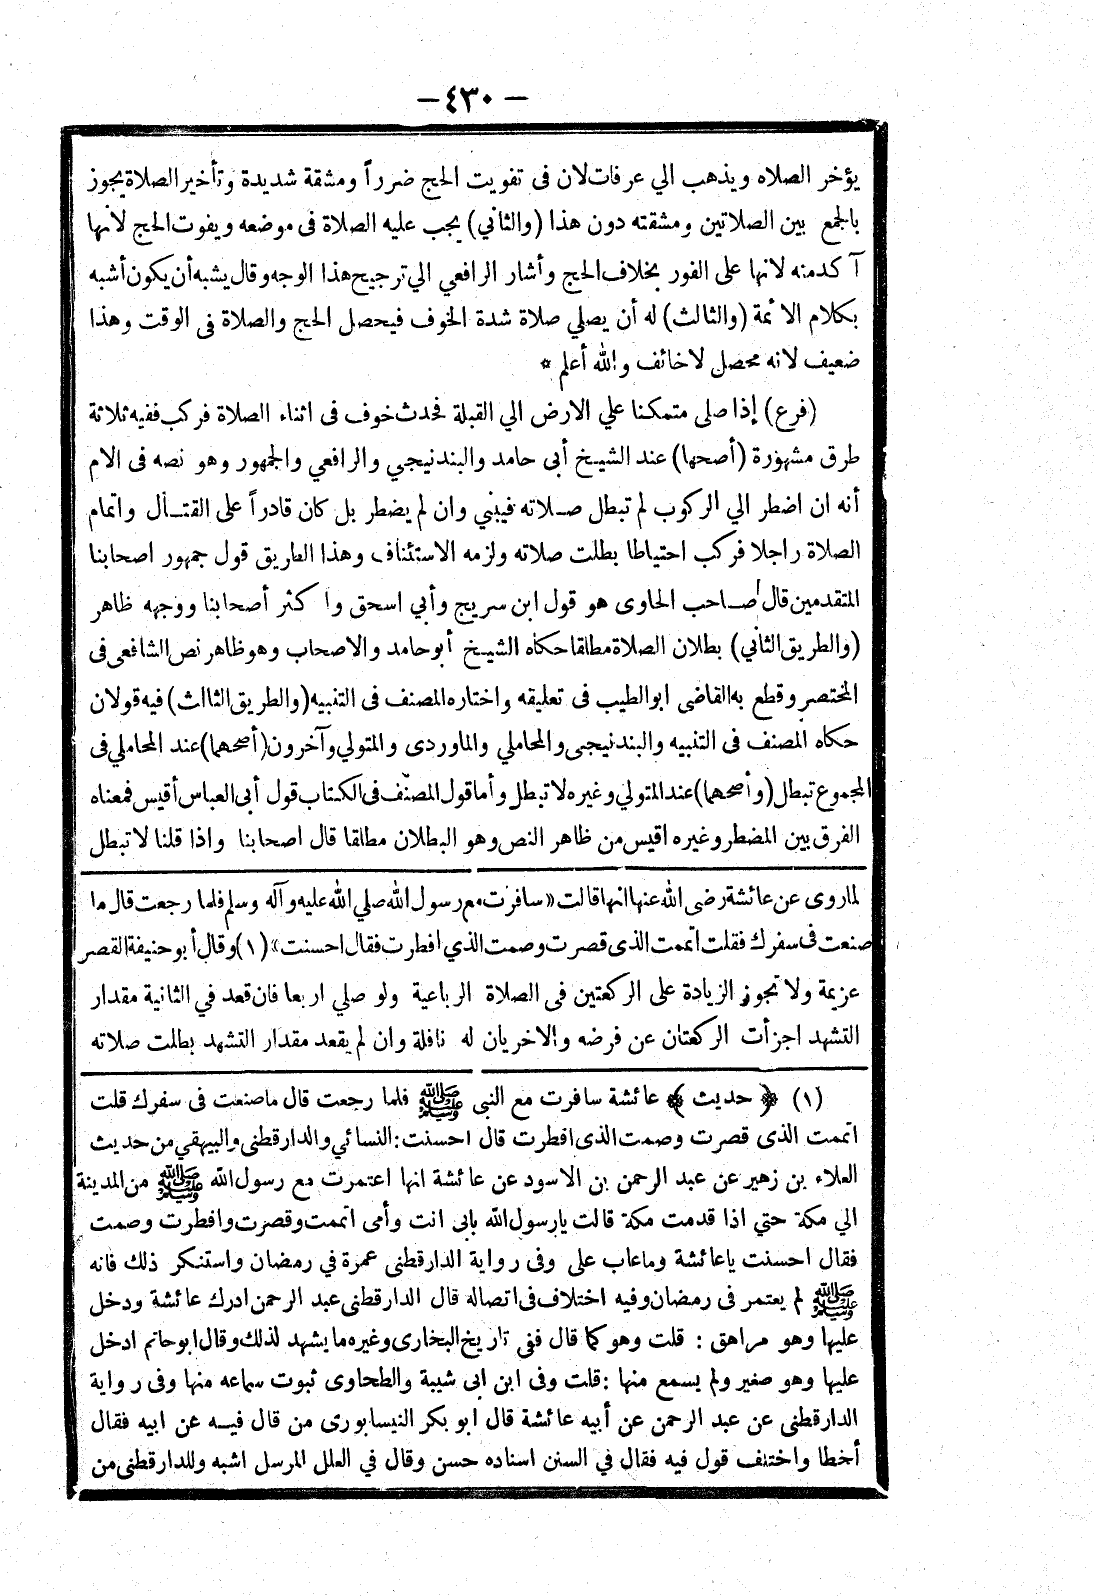 — ٤٣٠ —
يؤخر الصلاه ويذهب الي عرفات لان فى تفويت الحج ضرراً ومشقة شديدة وتأخير الصلاة يجوز
بالجمع بين الصلاتين ومشقته دون هذا (والثاني) يجب عليه الصلاة فى موضعه ويفوت الحج لأنها
آكد منه لانها على الفور بخلاف الحج وأشار الرافعي الي ترجيح هذا الوجه وقال يشبه أن يكون أشبه
بكلام الأئمة (والثالث) له أن يصلي صلاة شدة الخوف فيحصل الحج والصلاة فى الوقت وهذا
ضعيف لانه محصل لا خائف والله أعلم *
(فرع) إذا صلى متمكنا علي الارض الي القبلة فحدث خوف فى اثناء الصلاة فركب ففيه ثلاثة
طرق مشهورة (أصحها) عند الشيخ أبى حامد والبندنيجي والرافعي والجمهور وهو نصه فى الام
أنه ان اضطر الي الركوب لم تبطل صلاته فيبني وان لم يضطر بل كان قادراً على القتال واتمام
الصلاة راجلا فركب احتياطا بطلت صلاته ولزمه الاستئناف وهذا الطريق قول جمهور اصحابنا
المتقدمين قال صاحب الحاوى هو قول ابن سريج وأبي اسحق واكثر أصحابنا ووجهه ظاهر
(والطريق الثاني) بطلان الصلاة مطلقا حكاه الشيخ أبو حامد والاصحاب وهو ظاهر نص الشافعى فى
المختصر وقطع به القاضى ابو الطيب فى تعليقه واختاره المصنف فى التنبيه (والطريق الثالث) فيه قولان
حكاه المصنف فى التنبيه والبندنيجى والمحاملي والماوردى والمتولي وآخرون (أصحهما) عند المحاملي فى
المجموع تبطل (وأصحهما) عند المتولي وغيره لا تبطل وأما قول المصنّف فى الكتاب قول أبى العباس أقيس فمعناه
الفرق بين المضطر وغيره اقيس من ظاهر النص وهو البطلان مطلقا قال اصحابنا واذا قلنا لا تبطل
لما روى عن عائشة رضى الله عنها انها قالت «سافرت مع رسول الله صلي الله عليه وآله وسلم فلما رجعت قال ما
صنعت فى سفرك فقلت اتممت الذى قصرت وصمت الذي افطرت فقال احسنت» (١) وقال أبو حنيفة القصر
عزيمة ولا تجوز الزيادة على الركعتين فى الصلاة الرباعية ولو صلي اربعا فان قعد في الثانية مقدار
التشهد اجزأت الركعتان عن فرضه والاخريان له نافلة وان لم يقعد مقدار التشهد بطلت صلاته
(١) ﴿حديث﴾ عائشة سافرت مع النبى ﷺ فلما رجعت قال ما صنعت فى سفرك قلت
اتممت الذى قصرت وصمت الذى افطرت قال احسنت: النسائي والدارقطنى والبيهقي من حديث
العلاء بن زهير عن عبد الرحمن بن الاسود عن عائشة انها اعتمرت مع رسول الله ﷺ من المدينة
الي مكة حتي اذا قدمت مكة قالت يا رسول الله بابى انت وأمى اتممت وقصرت وافطرت وصمت
فقال احسنت يا عائشة وما عاب على وفى رواية الدارقطنى عمرة في رمضان واستنكر ذلك فانه
ﷺ لم يعتمر فى رمضان وفيه اختلاف فى اتصاله قال الدارقطنى عبد الرحمن ادرك عائشة ودخل
عليها وهو مراهق : قلت وهو كما قال ففى تاريخ البخارى وغيره ما يشهد لذلك وقال ابو حاتم ادخل
عليها وهو صغير ولم يسمع منها : قلت وفى ابن ابى شيبة والطحاوى ثبوت سماعه منها وفى رواية
الدارقطنى عن عبد الرحمن عن أبيه عائشة قال ابو بكر النيسابورى من قال فيه عن ابيه فقال
أخطا واختلف قول فيه فقال في السنن اسناده حسن وقال في العلل المرسل اشبه وللدارقطنى من